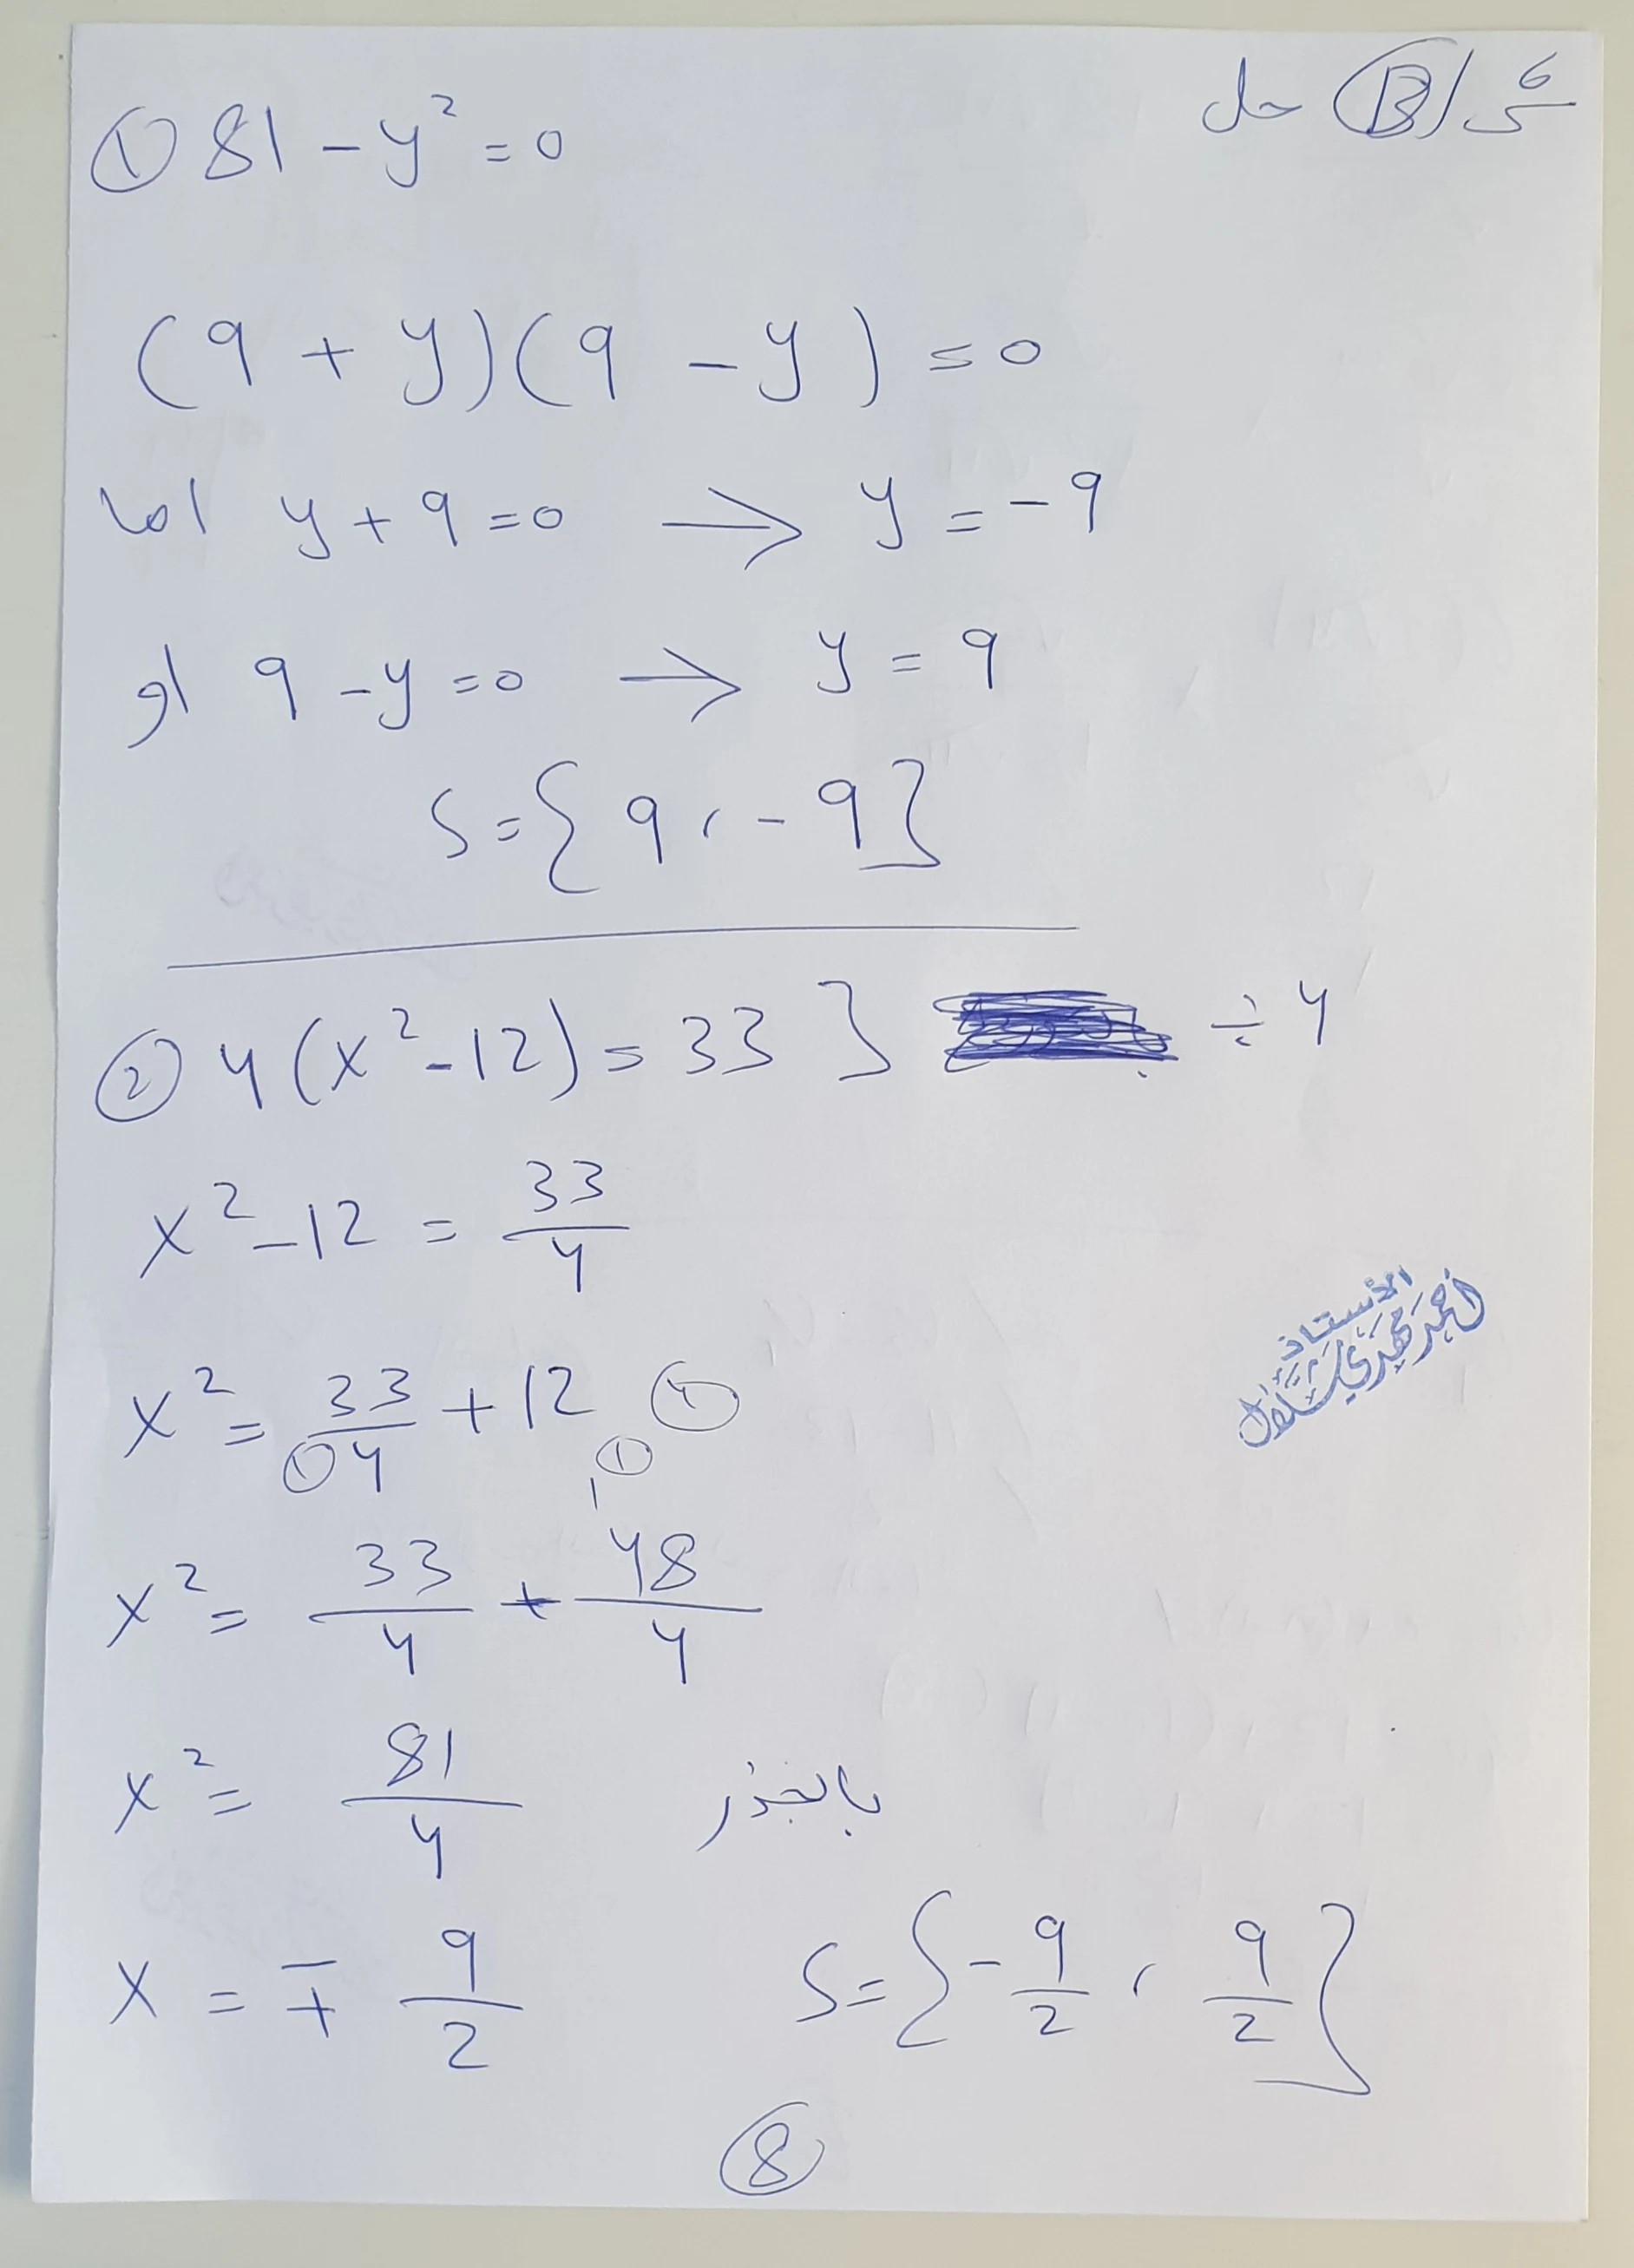 س6 / B حل
① 81 - y² = 0
(9 + y)(9 - y) = 0
اما y + 9 = 0 → y = -9
او 9 - y = 0 → y = 9
S = {9, -9}
② 4(x² - 12) = 33 } ÷ 4
x² - 12 = 33/4
x² = 33/4 + 12/1 ① ④ ①
x² = 33/4 + 48/4
x² = 81/4 بالجذر
x = ∓ 9/2 S = {-9/2, 9/2}
الأستاذ
احمد مهدي شلال
⑧